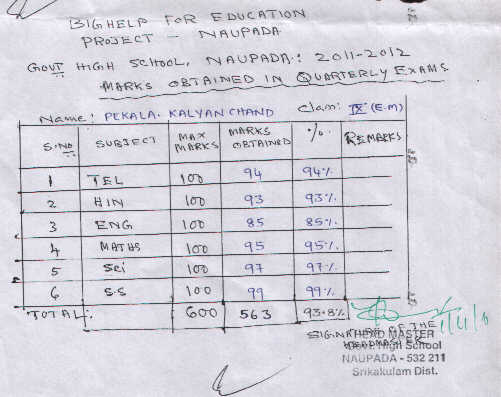 BIGHELP FOR EDUCATION
PROJECT - NAUPADA
GOVT HIGH SCHOOL, NAUPADA: 2011-2012
MARKS OBTAINED IN QUARTERLY EXAMS
Name: PEKALA. KALYAN CHAND Class: IX (E.M)
S.No SUBJECT MAX MARKS MARKS OBTAINED % REMARKS
1 TEL 100 94 94%
2 HIN 100 93 93%
3 ENG 100 85 85%
4 MATHS 100 95 95%
5 Sci 100 97 97%
6 S.S 100 99 99%
TOTAL: 600 563 93.8%
SIGNATURE OF THE
HEADMASTER
HEAD MASTER
High School
NAUPADA - 532 211
Srikakulam Dist.